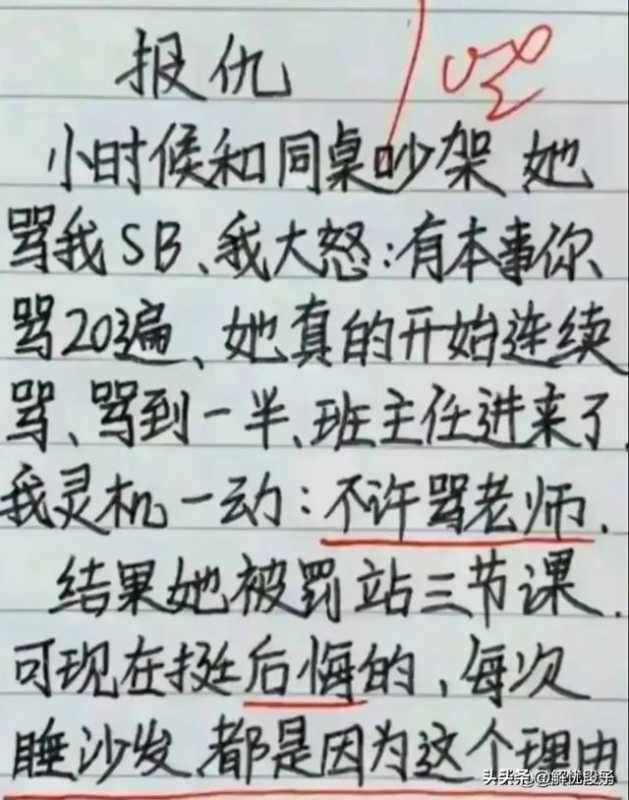 报仇
小时候和同桌吵架 她
骂我SB、我大怒:有本事你
骂20遍、她真的开始连续
骂、骂到一半、班主任进来了
我灵机一动:不许骂老师.
结果她被罚站三节课.
可现在挺后悔的,每次
睡沙发、都是因为这个理由
头条 @解忧段子